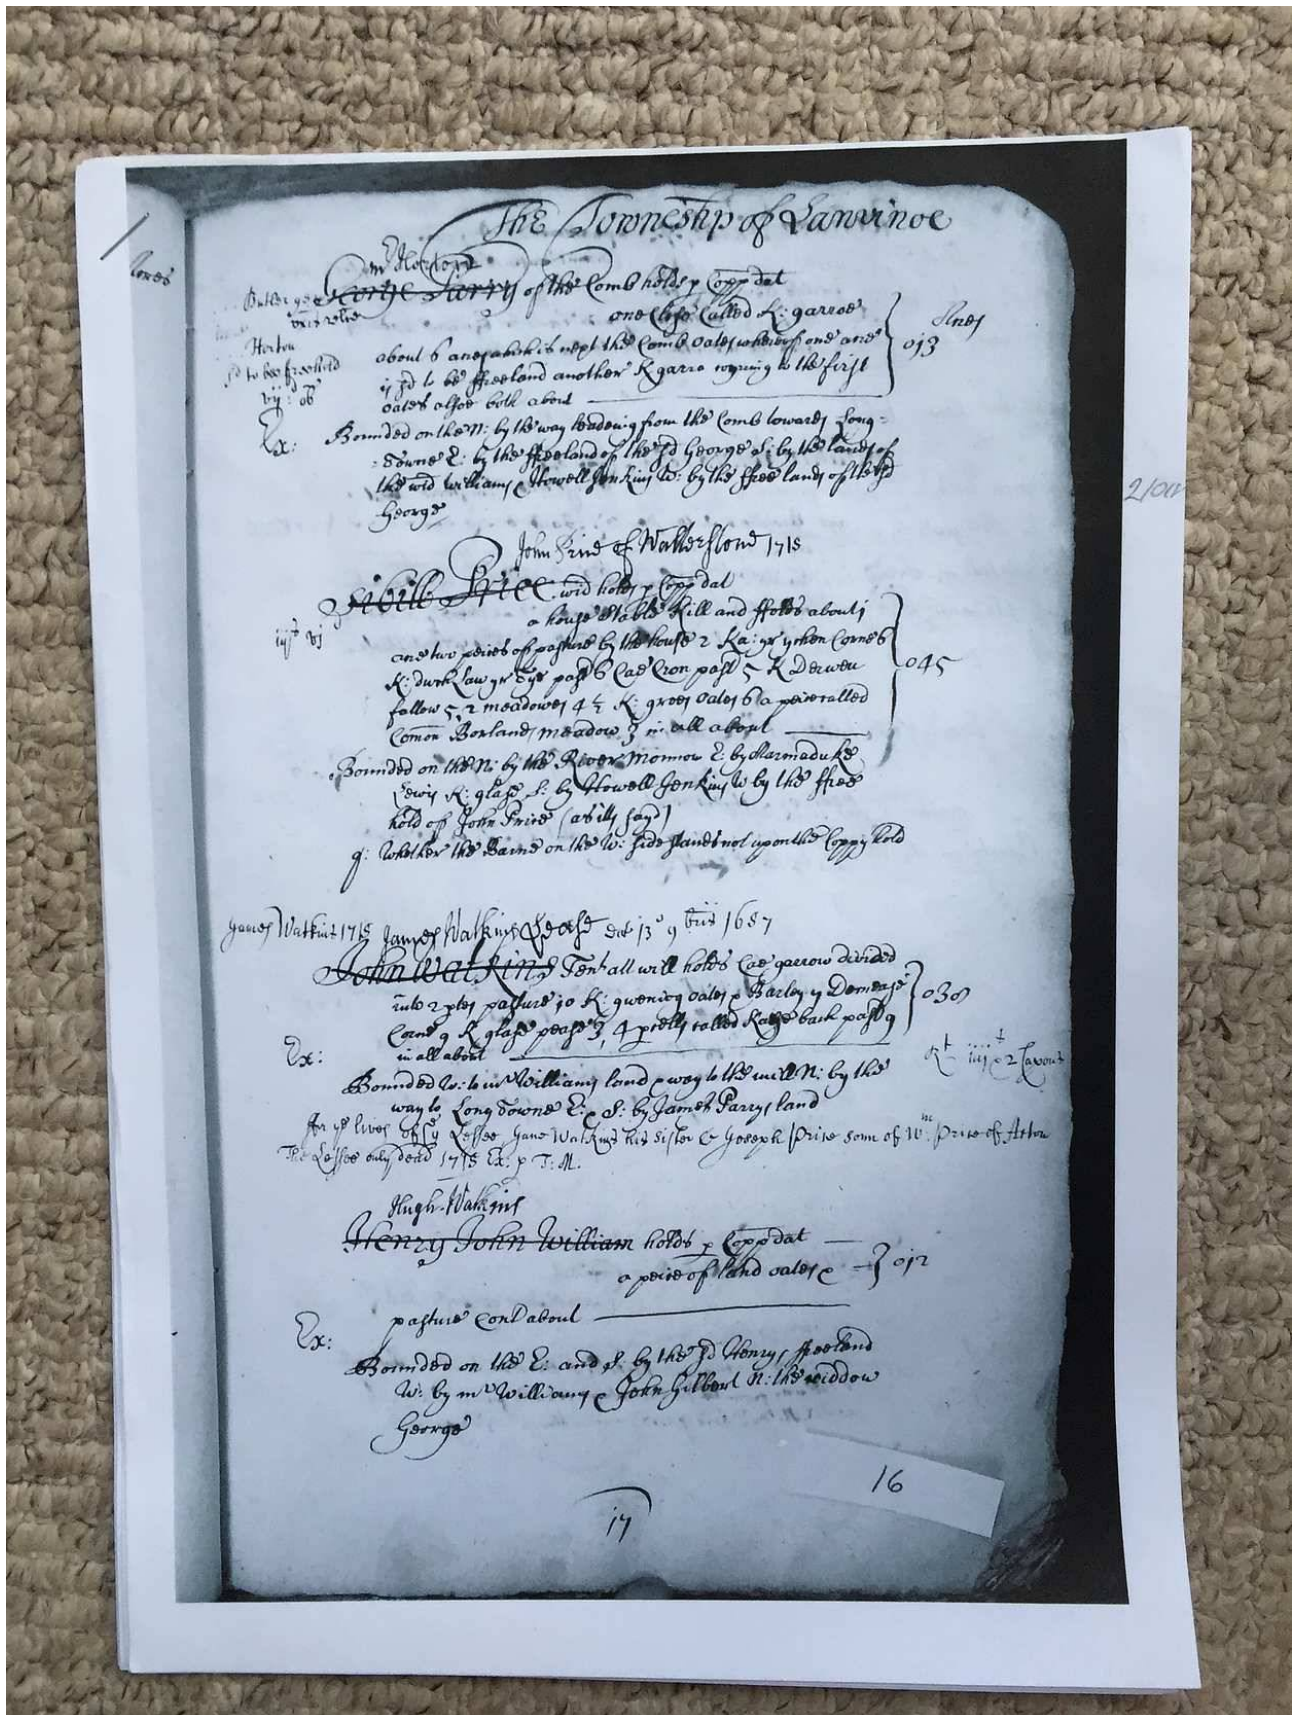 The Towneship of Lanvinoe
Mr Horton
George Parry of the Comb holds p Copp dat
one Close Called K: garroe
Acres
about 6 acres which is next the Comb oates whereof one acre
013
is sd to be ffreeland another K garro joyning to the first
oates alsoe both about
Horton
sd to be freehold
Ex:
Bounded on the N: by the way leadeing from the Comb towards Long-
-Towne E: by the ffreeland of the sd George S: by the lands of
the wid Williams & Howell Jenkins W: by the ffree lands of the sd
George
John Price of Walterstone 1718
Sibill Price wid holds p Copp dat
a house Stable Kill and ffolds about 1
acre two peices of pasture by the house 2 Ka: yr ychen Corne 6
045
K: past 6 Cae Cron past 5 K Derwen
fallow 5, 2 meadowes 4 ½ K: groes oates 6 a peice called
Comon Borland meadow 3 in all about
Bounded on the N: by the River Monnow E: by Marmaduke
Lewis K: glase S: by Howell Jenkins W by the ffree
hold of John Price (as its sayd)
q: Whether the Barne on the W: side stands not upon the Coppy hold
James Watkins 1718 James Watkins Lease dat 13° 9bris 1687
John Watkins Tent att will holds Cae garrow divided
into 2 ptes pasture 10 K: gwenicq oates & Barley
Corne 9 K glase pease 3, 4 called back past 9
in all about
Ex:
Bounded W: to mr Williams land & way to the mill N: by the
way to Long Towne E: & S: by James Parrys land
for ye lives of ye Lessee, Jane Watkins his sister & Joseph Price sonn of Wm: Price of
The Lessee only dead 1718 Ex: p T: M.
Hugh Watkins
Henry John William holds p Copp dat
a peice of land oates &
012
pasture Cont about
Ex:
Bounded on the E: and S: by the sd Henrys ffreeland
W: by mr Williams & John Gilbert N: the widdow
George
16
17